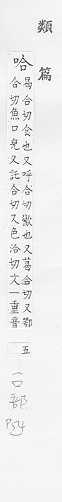 類篇
哈
曷合切会也又呼合切歠也又葛合切又鄂
合切魚口皃又託合切又色洽切文一重音
五
口部
P54